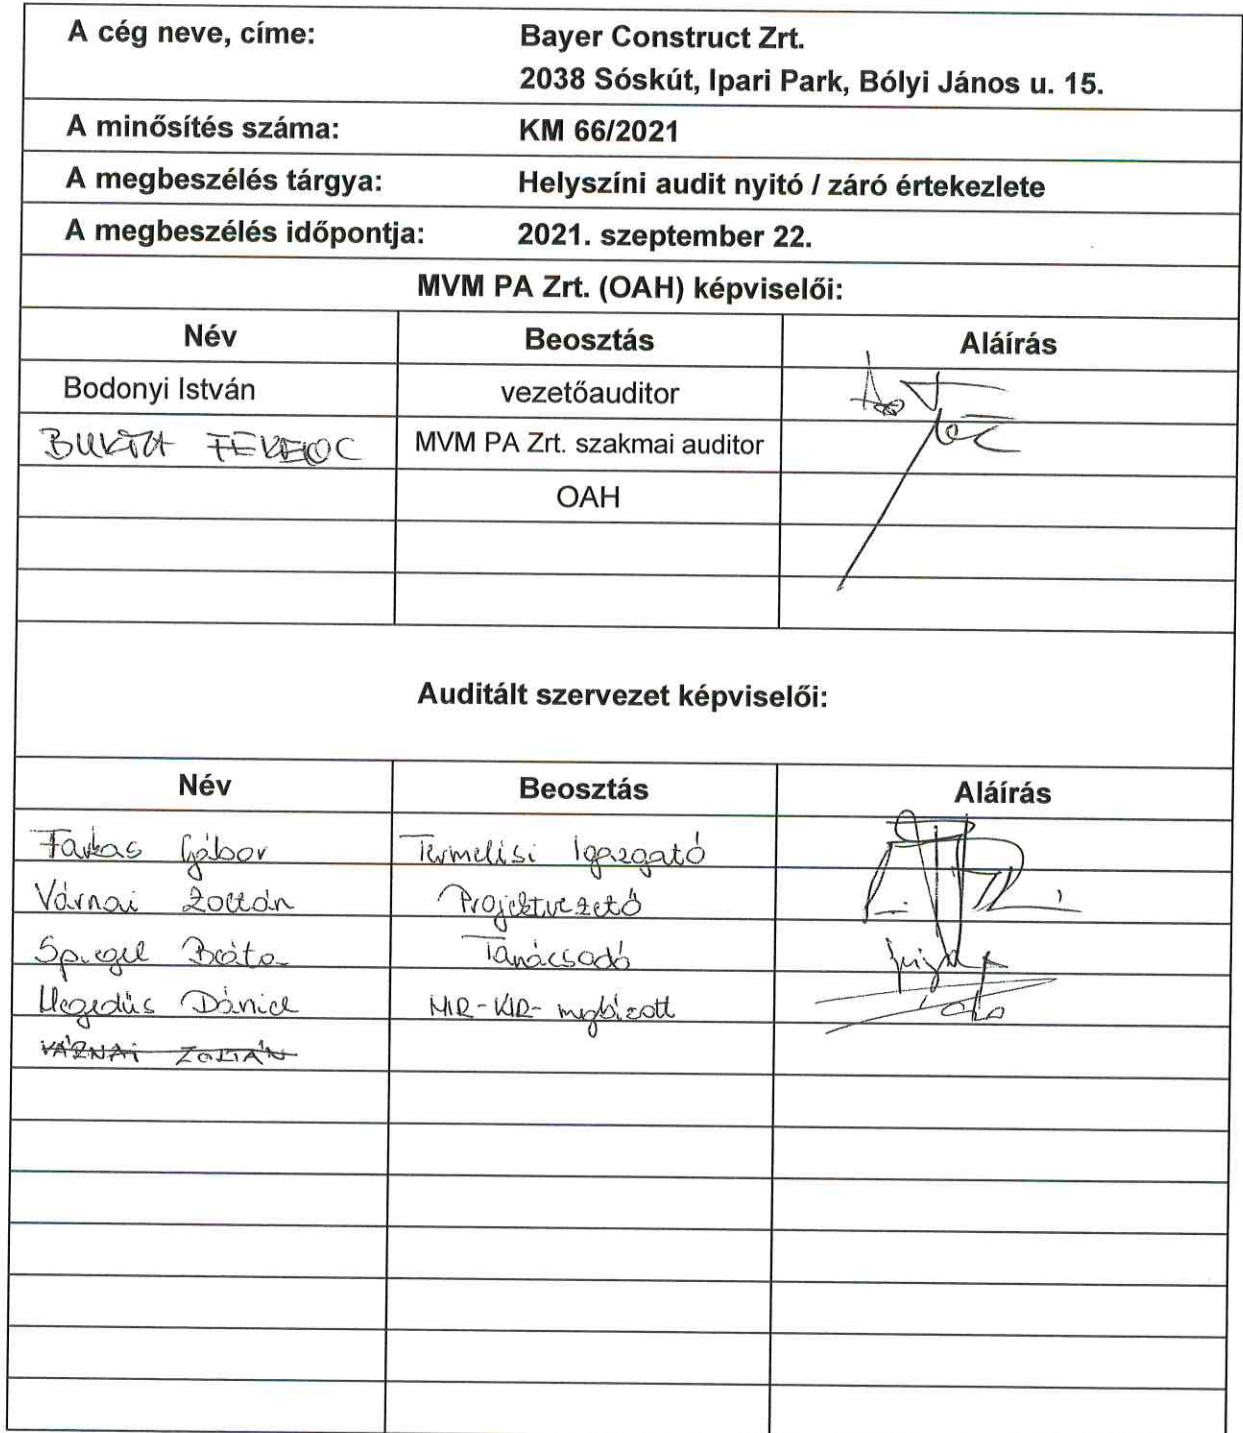 A cég neve, címe: Bayer Construct Zrt.
2038 Sóskút, Ipari Park, Bólyi János u. 15.
A minősítés száma: KM 66/2021
A megbeszélés tárgya: Helyszíni audit nyitó / záró értekezlete
A megbeszélés időpontja: 2021. szeptember 22.
MVM PA Zrt. (OAH) képviselői:
Név Beosztás Aláírás
Bodonyi István vezetőauditor
MVM PA Zrt. szakmai auditor
OAH
Auditált szervezet képviselői:
Név Beosztás Aláírás
Farkas Gábor Termelési Igazgató
Várnai Zoltán Projektvezető
Spiegel Beáta Tanácsadó
Hegedüs Dániel MIR-KIR- megbízott
VÁRNAI ZOLTÁN